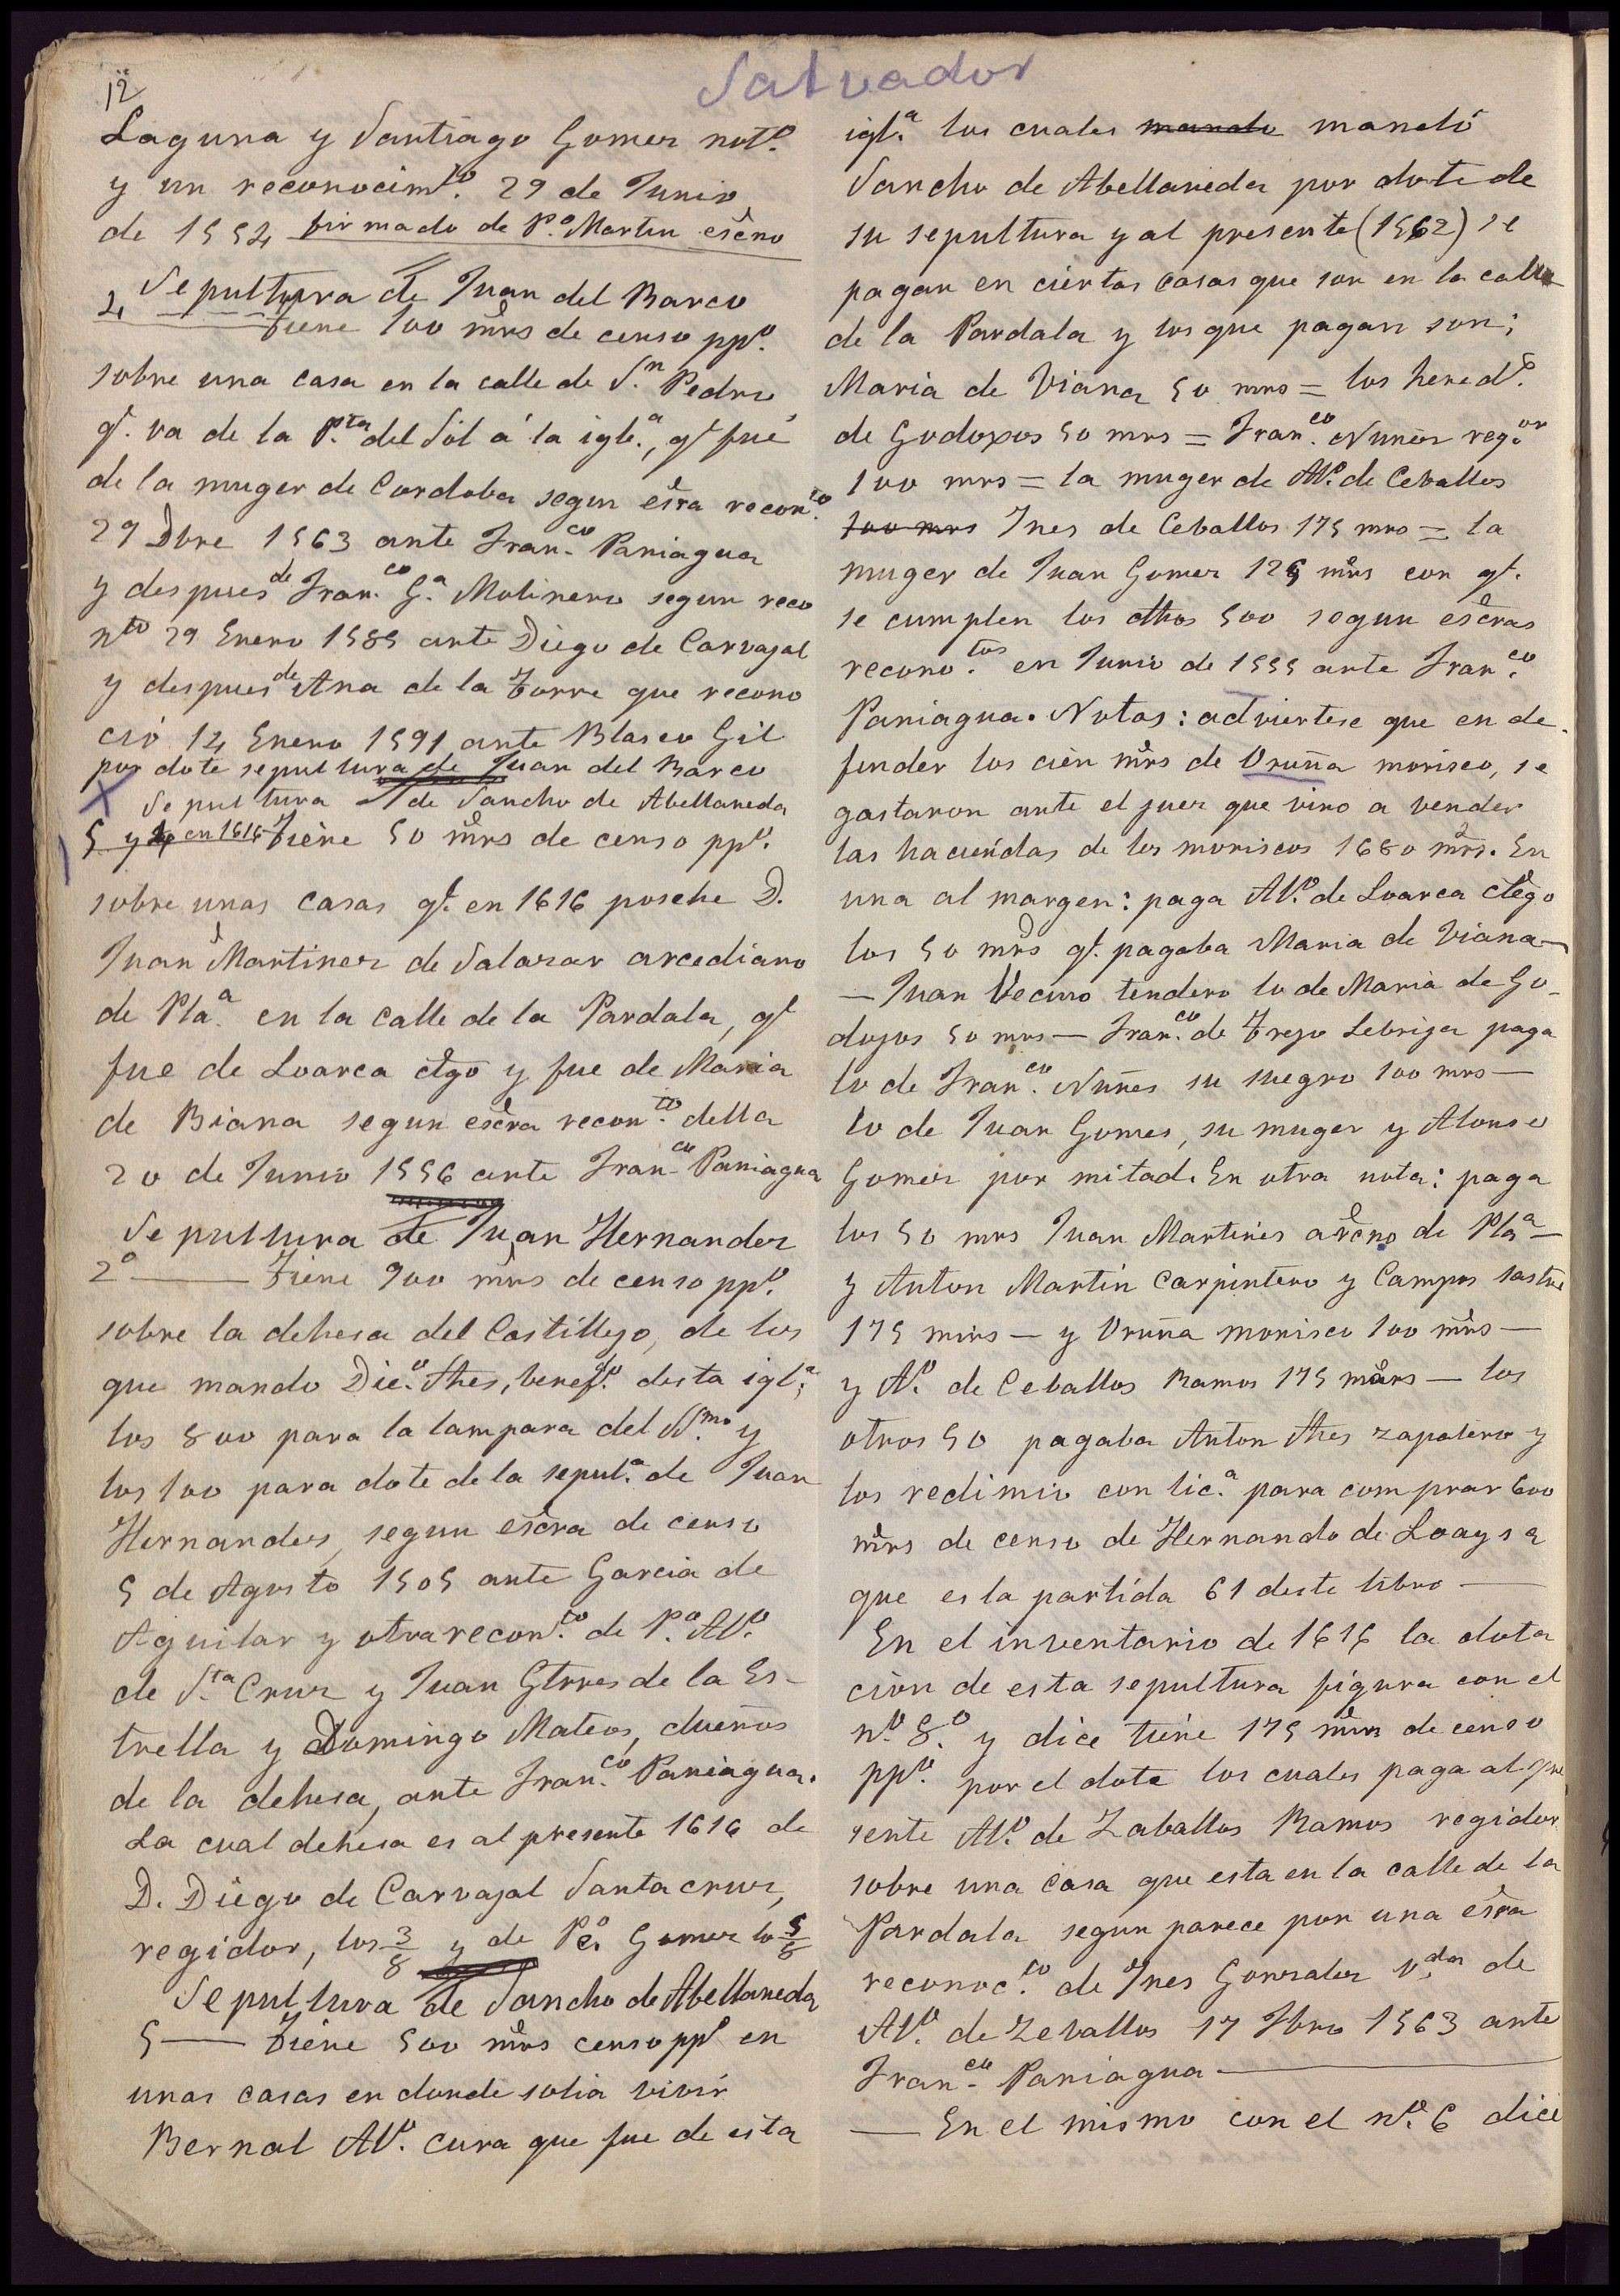 12
Salvador
Laguna y Santiago Gomez notº.
y un reconocimto. 29 de Junio
de 1552 firmado de Pº. Martin escno
Sepultura de Juan del Barco
4 Tiene 100 mrs de censo ppº.
sobre una casa en la calle de Sn. Pedro
q. va de la Pta. del Sol á la iglª., q. fué
de la muger de Cordoba segun escra reconto.
29 Dbre 1563 ante Franco. Paniagua
y despues de Franco. Gª. Molinero segun reco
nto 29 Enero 1585 ante Diego de Carvajal
y despues de Ana de la Torre que recono
ció 14 Enero 1591 ante Blasco Gil
por dote sepultura de Juan del Barco
X Sepultura de Sancho de Abellaneda
5 y 4 en 1616 Tiene 50 mrs de censo ppº.
sobre unas casas q. en 1616 posehe D.
Juan Martinez de Salazar arcediano
de Plaª. en la calle de la Pardala, q.
fue de Loarca clgo y fue de Maria
de Biana segun escra reconto. della
20 de Junio 1556 ante Franco. Paniagua
Sepultura de Juan Hernandez
2º Tiene 900 mrs de censo ppº.
sobre la dehesa del Castillejo, de los
que mando Dieº. Ahes, benefdo. desta iglª.;
los 800 para la lampara del SSmo. y
los 100 para dote de la sepulª. de Juan
Hernandes, segun escra de censo
5 de Agosto 1505 ante Garcia de
Aguilar y otra reconto. de Pº. Alº.
de Sta. Cruz y Juan Gtrres de la Es-
trella y Domingo Mateos, dueños
de la dehesa, ante Franco. Paniagua.
La cual dehesa es al presente 1616 de
D. Diego de Carvajal Santa cruz,
regidor, los 3/8 y de Pº. Gomez lo 5/8
Sepultura de Sancho de Abellaneda
5 — Tiene 500 mrs censo ppº en
unas casas en donde solia vivir
Bernal Alº. cura que fue de esta
iglª. los cuales mando mandó
Sancho de Abellaneda por dote de
su sepultura y al presente (1562) se
pagan en ciertas casas que son en la calle
de la Pardala y los que pagan son;
Maria de Viana 50 mrs = los heredº.
de Godopos 50 mrs = Franco. Nuñez regor.
100 mrs = la muger de Alº. de Ceballos
100 mrs Ines de Ceballos 175 mrs = la
muger de Juan Gomez 125 mrs con q.
se cumplen los dhos 500 segun escras
reconotos. en Junio de 1555 ante Franco.
Paniagua. Notas: adviertese que en de
fender los cien mrs de Uruña morisco, se
gastaron ante el juez que vino a vender
las haciendas de los moriscos 1680 mrs. En
una al margen: paga Alº. de Loarca clego
los 50 mrs q. pagaba Maria de Viana—
— Juan Vecino tendero lo de Maria de Go-
dojos 50 mrs — Franco. de Trejo Lebrija paga
lo de Franco. Nuñes su suegro 100 mrs —
lo de Juan Gomes, su muger y Alonso
Gomez por mitad. En otra nota: paga
los 50 mrs Juan Martines arcno de Plaª —
y Anton Martin Carpintero y Campos sastre
175 mrs — y Uruña morisco 100 mrs —
y Aº. de Ceballos Ramos 175 mrs — los
otros 50 pagaba Anton Ahes zapatero y
los redimio con licª. para comprar 600
mrs de censo de Hernando de Loaysa
que es la partida 61 deste libro —
En el inventario de 1616 la dota
cion de esta sepultura figura con el
nº. 8º. y dice tiene 175 mrs de censo
ppº. por el dote los cuales paga al pre
sente Alº. de Zaballos Ramos regidor
sobre una casa que esta en la calle de la
Pardala segun parece por una escra
reconocto. de Ines Gonzalez vda. de
Alº. de Zeballos 17 Fbro 1563 ante
Franco. Paniagua —
— En el mismo con el nº. 6 dice